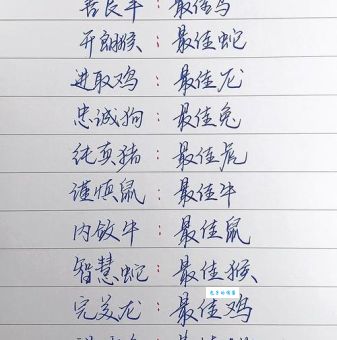 善良羊：最佳马
开朗猴：最佳蛇
进取鸡：最佳龙
忠诚狗：最佳兔
纯真猪：最佳虎
谨慎鼠：最佳牛
内敛牛：最佳鼠
智慧蛇：最佳猴
完美龙：最佳鸡